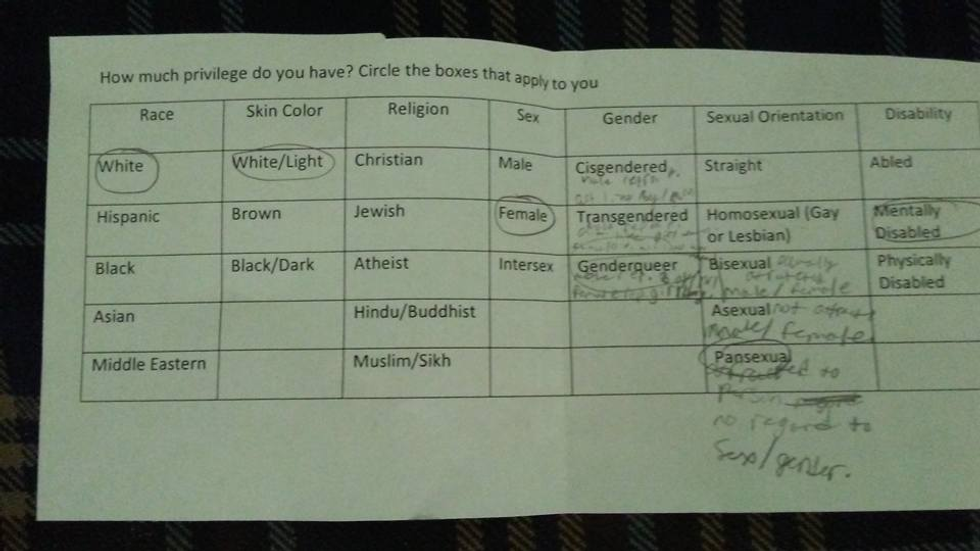 How much privilege do you have? Circle the boxes that apply to you
Race Skin Color Religion Sex Gender Sexual Orientation Disability
White White/Light Christian Male Cisgendered Straight Abled
Hispanic Brown Jewish Female Transgendered Homosexual (Gay or Lesbian) Mentally Disabled
Black Black/Dark Atheist Intersex Genderqueer Bisexual male/female Physically Disabled
Asian Hindu/Buddhist Asexual not male/female
Middle Eastern Muslim/Sikh Pansexual
to
person
no regard to
sex/gender.